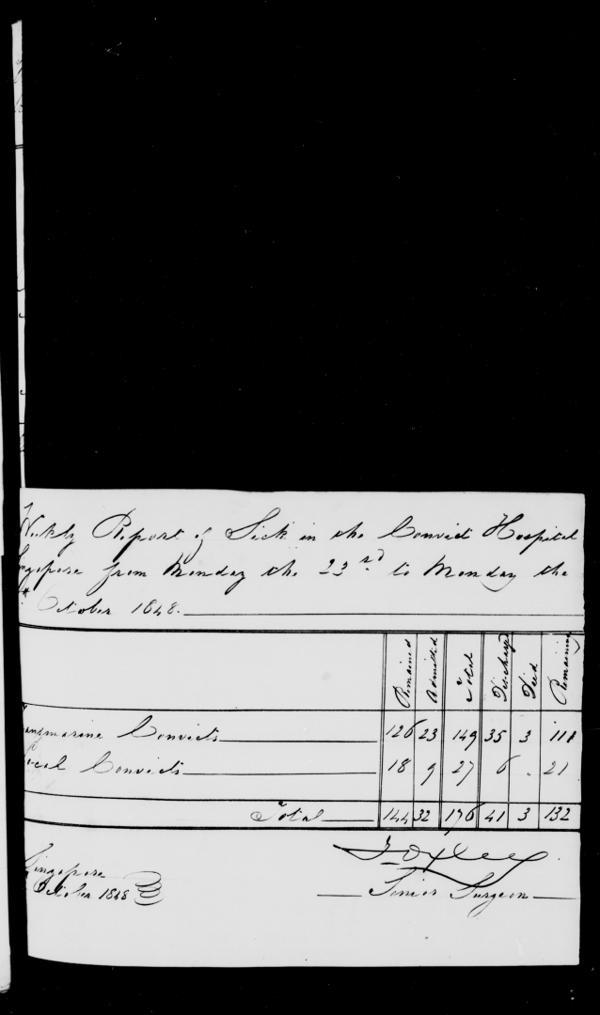 Weekly Report of Sick in the Convict Hospital
ngapore from Monday the 23rd to Monday the
October 1848.
Remained Admitted Total Discharged Died Remaining
ansmarine Convicts 126 23 149 35 3 111
ocal Convicts 18 9 27 6 . 21
Total 144 32 176 41 3 132
Singapore
October 1848
T Oxley
Senior Surgeon